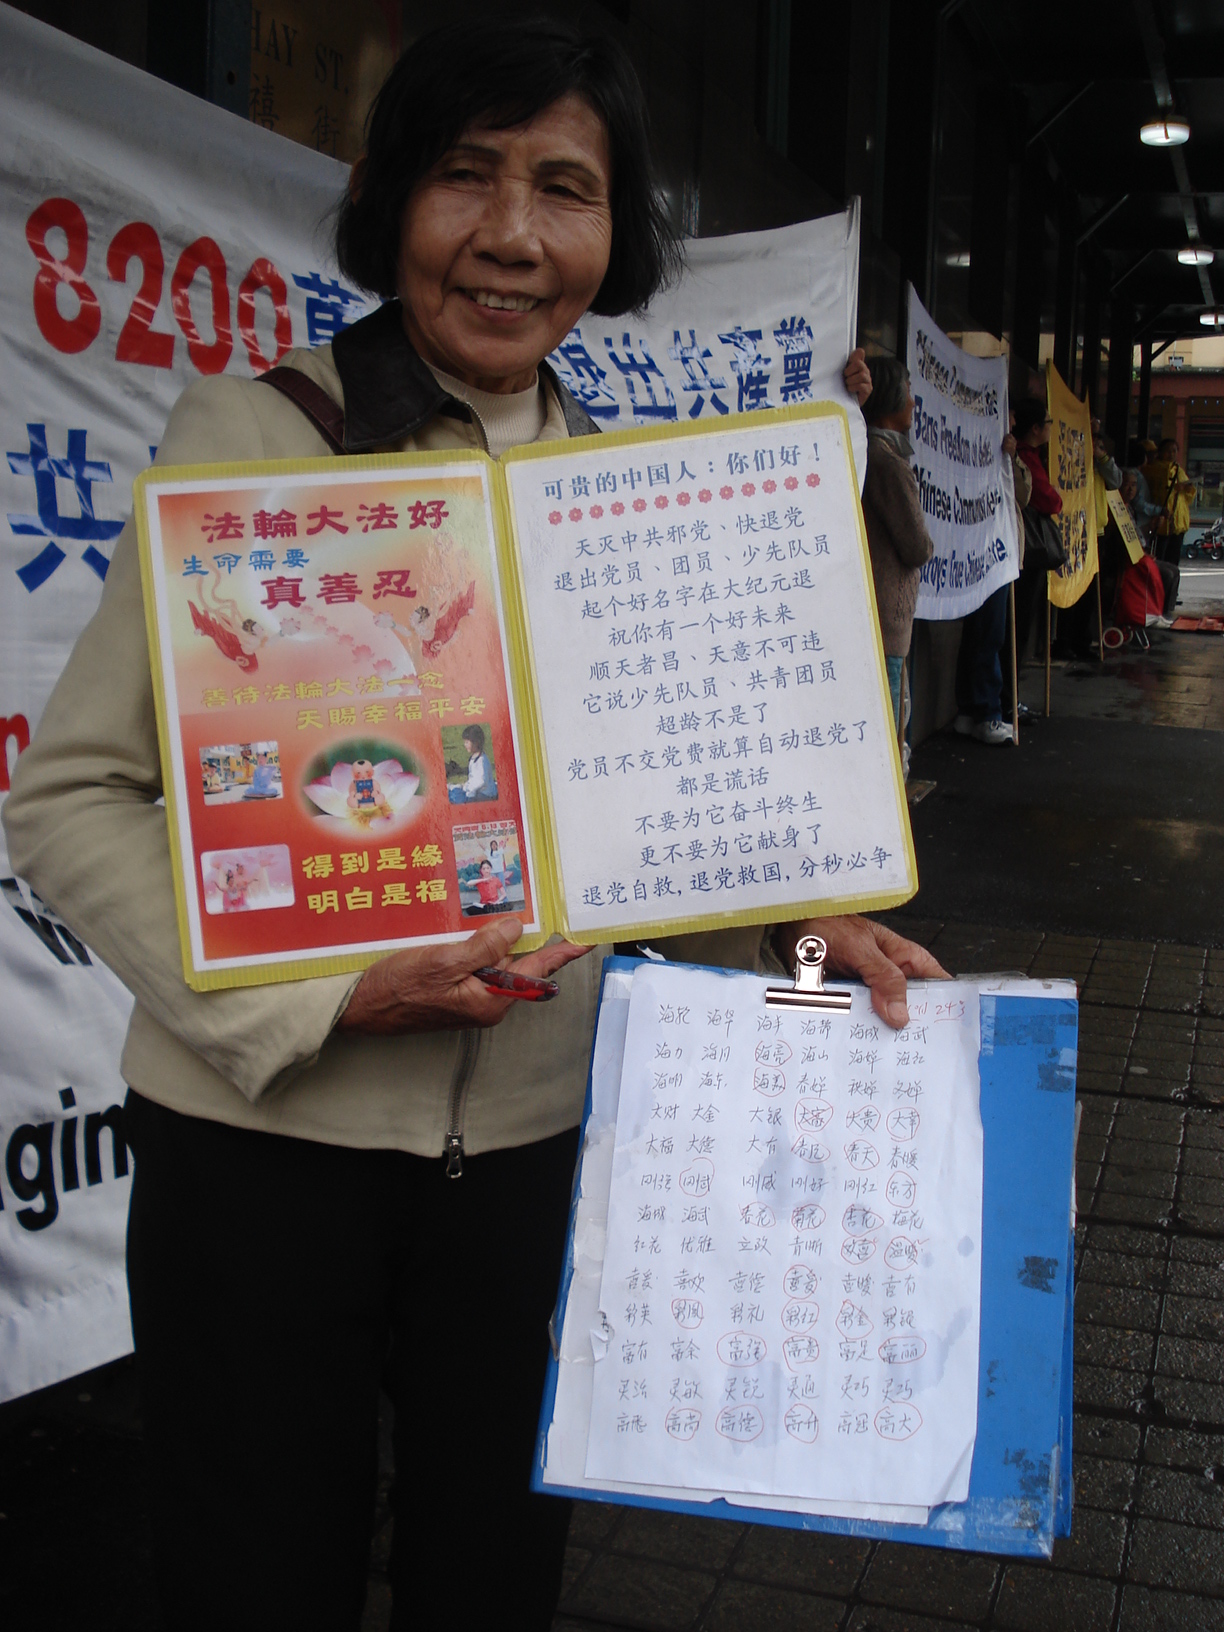 HAY ST.
禧 街
8200萬
退出共產黨
共
gin
法輪大法好
生命需要
真善忍
善待法輪大法一念
天賜幸福平安
得到是緣
明白是福
可贵的中国人：你们好！
天灭中共邪党、快退党
退出党员、团员、少先队员
起个好名字在大纪元退
祝你有一个好未来
顺天者昌、天意不可违
它说少先队员、共青团员
超龄不是了
党员不交党费就算自动退党了
都是谎话
不要为它奋斗终生
更不要为它献身了
退党自救,退党救国,分秒必争
Bans Freedom of
Chinese Communist
True Chinese
海武
海力 海月 海亮 海山 海婵 海红
海明 海东 海美 春婵 秋婵 冬婵
大财 大金 大银 大富 大贵 大幸
大福 大德 大有 春民 春天 春暖
刚强 刚武 刚威 刚好 刚红 东方
海明 海武 春花 菊花 杏花 梅花
红花 优雅 立政 青晰 欢喜 温暖
喜爱 喜欢 喜德 喜爱 喜暖 喜有
彩英 彩凤 彩礼 彩红 彩金 彩银
富有 富余 富强 富贵 富足 富丽
灵治 灵敏 灵锐 灵通 灵巧 灵巧
高尚 高德 高升 高大